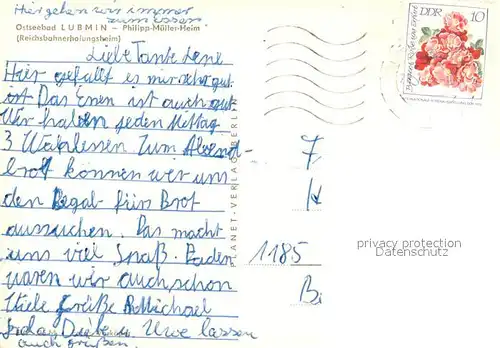 Hier gehen wir immer
zum essen
Ostseebad LUBMIN – Philipp-Müller-Heim
(Reichsbahnerholungsheim)
Liebe Tante Lene
Hier gefällt es mir sehr gut
ist Das Essen ist auch gut
Wir haben jeden Mittag
3 Wahlessen Zum Abend-
brot können wir uns
den Begal fürs Brot
aussuchen. Das macht
uns viel Spaß. Baden
waren wir auch schon
Viele Grüße Michael
Uwe lassen
auch grüßen.
PLANET-VERLAG BERLIN
DDR 10
7
K
1185
B
privacy protection
Datenschutz